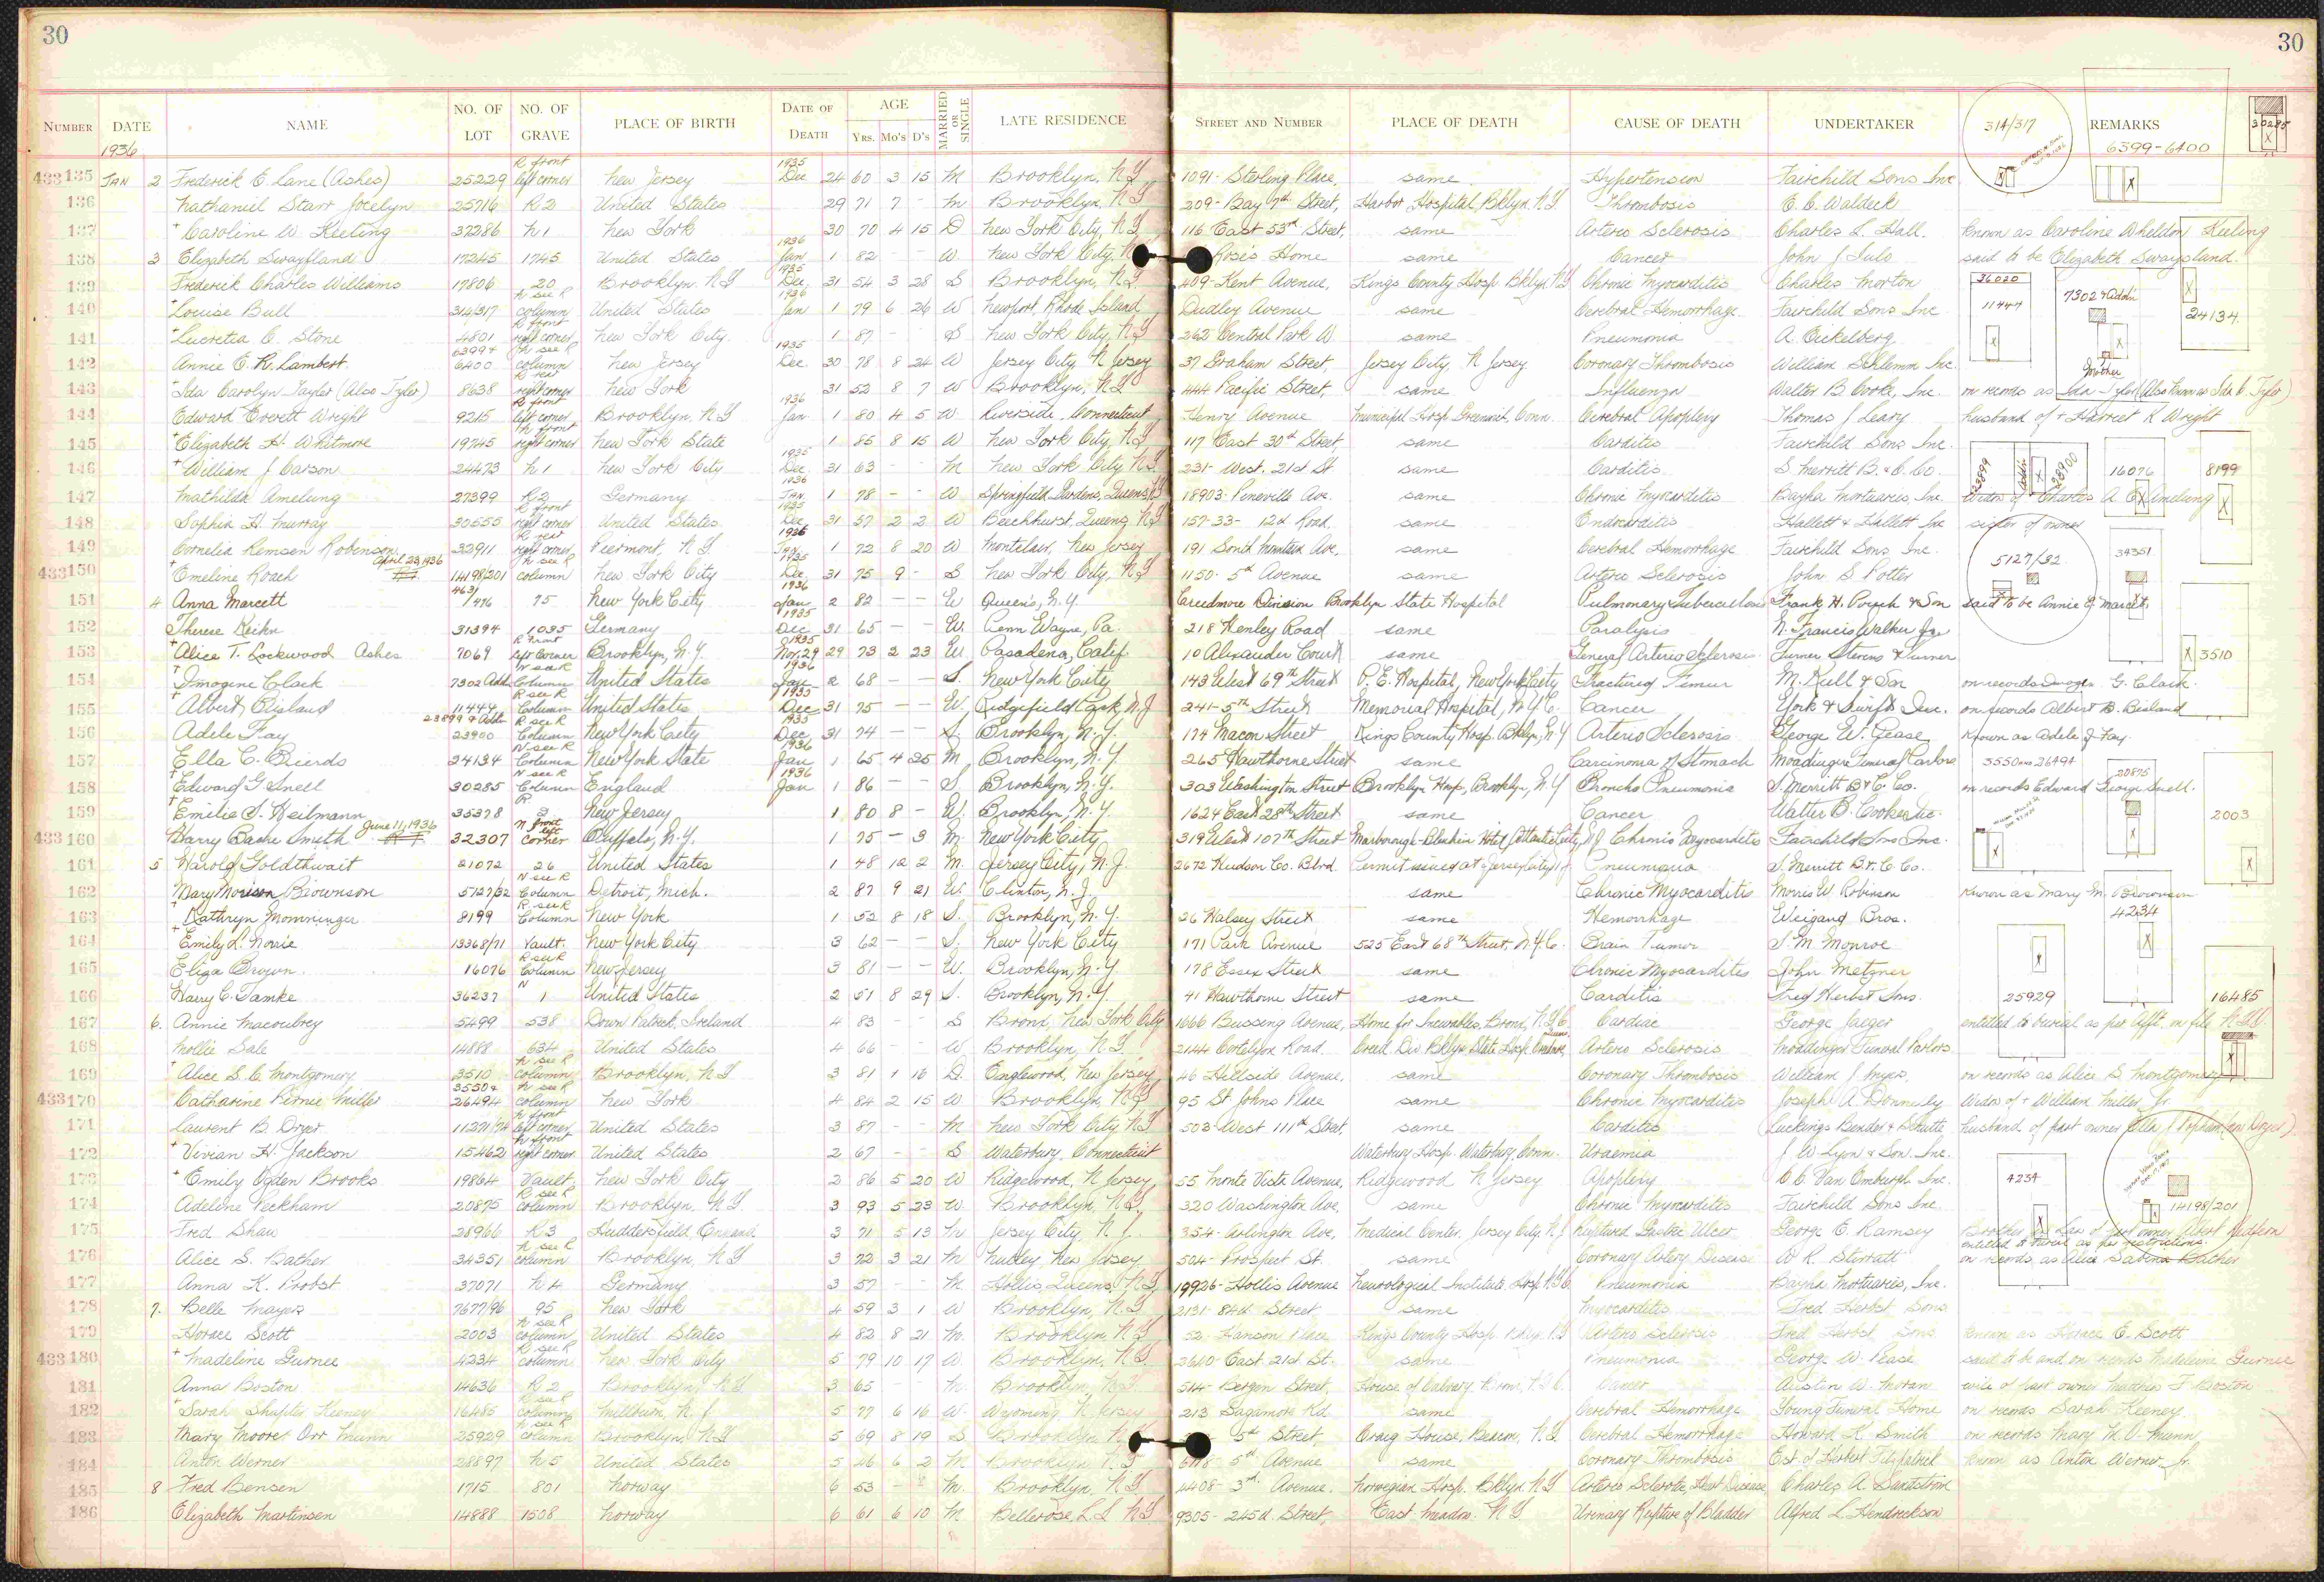 30
30
NUMBER DATE NAME NO. OF LOT NO. OF GRAVE PLACE OF BIRTH DATE OF DEATH AGE Yrs. Mo's D's MARRIED OR SINGLE LATE RESIDENCE STREET AND NUMBER PLACE OF DEATH CAUSE OF DEATH UNDERTAKER REMARKS
1936
314/317 6399-6400 30285
433135 JAN 2 Frederick E. Lane (Ashes) 25229 R front left corner New Jersey 1935 Dec 24 60 3 15 M Brooklyn, N.Y. 1091- Sterling Place, same Hypertension Fairchild Sons Inc.
136 Nathaniel Starr Jocelyn 25716 R2 United States 29 71 7 - M Brooklyn, N.Y. 209- Bay 7th Street, Harbor Hospital, Bklyn. N.Y. Thrombosis E. C. Waldeck
137 + Caroline W. Keeling 37286 N1 New York 30 70 4 15 D New York City, N.Y. 116 East 53rd Street, same Arterio Sclerosis Charles L. Hall. Known as Caroline Wheldon Keeling
138 3 Elizabeth Swaysland 17245 1745 United States 1936 Jan 1 82 - - W New York City, Rose's Home same Cancer John J. said to be Elizabeth Swaysland.
139 Frederick Charles Williams 17806 20 Brooklyn, N.Y. 1935 Dec. 31 54 3 28 S Brooklyn, N.Y. 409- Kent Avenue, Kings County Hosp Bklyn N.Y. Chronic Myocarditis Charles Morton 36020
140 + Louise Bull 314/317 N see R column United States 1936 Jan 1 79 6 26 W Newport, Rhode Island Dudley Avenue same Cerebral Hemorrhage Fairchild Sons Inc. 11447 7302 & Addn 24134
141 + Lucretia C. Stone 4801 R front right corner New York City. 1 87 - - S New York City, N.Y. 262- Central Park W. same Pneumonia A. Eickelberg.
142 Annie E. R. Lambert 6399 & 6400 N see R column New Jersey 1935 Dec. 30 78 8 24 W Jersey City, N. Jersey 37 Graham Street, Jersey City, N. Jersey Coronary Thrombosis William Schlemm Inc. Mother
143 + Ida Carolyn Taylor (Also Tyler) 8638 R rear right corner New York 31 52 8 7 W Brooklyn, N.Y. 444 Pacific Street, same Influenza Walter B. Cooke, Inc. on records as Ida - Tyler (Also known as Ida C. Tyler)
144 Edward Everett Wright 9215 R front left corner Brooklyn, N.Y. 1936 Jan. 1 80 4 5 W Riverside, Connecticut Henry Avenue Municipal Hosp. Greenwich, Conn. Cerebral Apoplexy Thomas J. Leary husband of + Harriet K. Wright
145 + Elizabeth H. Whitmore 19745 N front right corner New York State 1 85 8 15 W New York City, N.Y. 117 East 30th Street, same Carditis Fairchild Sons, Inc.
146 + William J. Carson 24473 N1 New York City 1935 Dec. 31 63 - - M New York City, N.Y. 231- West. 21st St. same Carditis. S. Merritt B. & C. Co. 23899 Addn 23900 16076 8199
147 Mathilda Amelung 27399 R2 Germany 1936 JAN. 1 78 - - W Springfield Gardens, Queens, N.Y. 18903- Pineville Ave. same Chronic Myocarditis Bayha Mortuaries, Inc. Widow of Charles A. C. Amelung
148 Sophia H. Murray 30555 R front right corner United States 1935 Dec 31 57 2 2 W Beechhurst, Queens, N.Y. 157-33- 12th Road. same Endocarditis Hallett & Hallett Inc sister of owner
149 Cornelia Remsen Robinson 32911 R rear right corner Piermont, N.Y. 1936 JAN 1 72 8 20 W Montclair, New Jersey 191 South Mountain Ave, same Cerebral Hemorrhage Fairchild Sons, Inc. 5127/32 34351
433150 + Emeline Roach April 23, 1936 14198/201 N see R column New York City 1935 Dec. 31 75 9 - S New York City, N.Y. 1150- 5th Avenue same Arterio Sclerosis John S. Potter
151 4 Anna Marcett 463/476 75 New York City 1936 Jan 2 82 - - W Queens, N.Y. Creedmore Division Brooklyn State Hospital Pulmonary Tuberculosis Frank H. & Son said to be Annie G. Marcett.
152 Therese Keihn 31394 1035 Germany 1935 Dec 31 65 - - W. Penn Wayne, Pa. 218 Henley Road same Paralysis N. Francis Walker
153 + Alice T. Lockwood Ashes 7069 R Front left Corner Brooklyn, N.Y. 1935 Nov. 29 29 73 2 23 W Pasadena, Calif. 10 Alexander Court same General Arterio Sclerosis Turner Stevens & Turner 3510
154 + Imogene Clark 7302 Addn N see R Column United States 1936 Jan 2 68 - - S. New York City 143 West 69th Street P. E. Hospital, New York City Fractured Femur M. Kull & Son on records Imogen G. Clark.
155 + Albert Bisland 11447 R see R Column United States 1935 Dec 31 75 - - W. Ridgefield Park, N.J. 241- 5th Street Memorial Hospital, N.Y.C. Cancer York & Swift Inc. on records Albert B. Bisland
156 Adele Fay 23899 & Addn 23900 R see R Column New York City 1935 Dec 31 74 - - S. Brooklyn, N.Y. 174 Macon Street Kings County Hosp. Bklyn, N.Y Arterio Sclerosis George W. Pease Known as Adele J. Fay
157 Ella C. Brierds 24134 N see R Column New York State 1936 Jan 1 65 4 25 M. Brooklyn, N.Y. 265 Hawthorne Street same Carcinoma of Stomach Moadinger Funeral Parlors 3550 and 26494
158 + Edward G. Snell 30285 N see R Column England 1936 Jan 1 86 - - S. Brooklyn, N.Y. 303 Washington Street Brooklyn Hosp, Brooklyn, N.Y Broncho Pneumonia S. Merritt B & C. Co. on records Edward George Snell. 20875
159 + Emilie S. Heilmann 35378 R 3 New Jersey 1 80 8 - W. Brooklyn, N.Y. 1624 East 28th Street same Cancer Walter B. Cooke Inc. 2003
433160 Harry Bache Smith June 11, 1936 32307 N front left corner Buffalo, N.Y. 1 75 - 3 M. New York City 319 West 107th Street Marlborough-Blenheim Hotel Atlantic City, N.J. Chronic Myocarditis Fairchild Sons Inc.
161 5 Harold Goldthwait 21072 26 United States 1 48 10 2 M. Jersey City, N.J. 2672 Hudson Co. Blvd. Permit issued at Jersey City, N.J. Pneumonia S. Merritt B & C Co.
162 Mary Monson Brownson 5127/32 N see R Column Detroit, Mich. 2 87 9 21 W. Clinton, N.J. same Chronic Myocarditis Morris W. Robinson Known as Mary M. Brownson
163 + Kathryn Momminger 8199 R see R Column New York 1 52 8 18 S. Brooklyn, N.Y. 26 Halsey Street same Hemorrhage Weigand Bros. 4234
164 + Emily L. Norrie 13368/71 Vault. New York City 3 62 - - S. New York City 171 Park Avenue 525 East 68th Street, N.Y.C. Brain Tumor S. M. Monroe
165 Eliza Brown. 16076 R see R Column New Jersey 3 81 - - W. Brooklyn, N.Y. 178 Essex Street same Chronic Myocarditis John Metzner
166 Harry C. Tamke 36237 N 1 United States 2 51 8 29 S. Brooklyn, N.Y. 41 Hawthorne Street same Carditis Fred Herbst Sons. 25929 16485
167 6. Annie Macoubrey 5499 538 Down Patrick, Ireland 4 83 - - S Bronx, New York City 1666 Bussing Avenue, Home for Incurables, Bronx, N.Y.C. Cardiac George Jaeger entitled to burial as per Afft. on file
168 Mollie Sale 14888 634 United States 4 66 - - W Brooklyn, N.Y. 2144 Cortelyou Road. Creed. Div Bklyn State Hosp. Arterio Sclerosis Moadinger Funeral Parlors
169 + Alice S. C. Montgomery 3510 N see R column Brooklyn, N.Y 3 81 1 16 D. Englewood, New Jersey 46 Hillside Avenue, same Coronary Thrombosis William J. Myers on records as Alice S. Montgomery
433170 Catharine Pirnie Miller 3550 & 26494 N see R column New York 4 84 2 15 W Brooklyn, N.Y. 95 St Johns Place same Chronic Myocarditis Joseph A. Donnelly Widow of + William Miller, Jr.
171 Laurent B. Dryer 11271/74 N front left corner United States 3 87 - - M New York City, N.Y. 503 West 111th Street, same Carditis Luckings Bender & Schutte husband of part owner
172 + Vivian H. Jackson 15462 N front right corner United States 2 67 - - S Waterbury, Connecticut Waterbury Hosp. Waterbury, Conn. Uraemia J. W. Lyon & Son. Inc.
173 + Emily Ogden Brooks 19864 Vault. New York City 2 86 5 20 W Ridgewood, N. Jersey, 55 Monte Vista Avenue, Ridgewood N. Jersey Apoplexy C. C. Van Emburgh Inc. 4234
174 Adeline Peckham 20875 R see R column Brooklyn, N.Y. 3 93 5 23 W. Brooklyn, N.Y. 320 Washington Ave, same Chronic Myocarditis Fairchild Sons Inc. 14198/201
175 Fred Shaw 28966 R3 Huddersfield, England 3 71 5 13 M Jersey City, N.J. 354- Arlington Ave, Medical Center, Jersey City, N.J. Ruptured Gastric Ulcer George E. Ramsey Brother in Law of part owner Albert Redfern entitled to burial as per restrictions
176 Alice S. Bather 34351 N see R column Brooklyn, N.Y 3 72 3 21 M Nutley, New Jersey 504- Prospect St. same Coronary Artery Disease W. R. Stirratt on records as Alice Sabina Bather
177 Anna K. Probst 37071 N4 Germany 3 57 - - M. Hollis, Queens, N.Y. 19926- Hollis Avenue Neurological Institute Hosp. N.Y.C. Pneumonia Bayha Mortuaries, Inc.
178 7. Belle Mayers 7677/96 95 New York 4 59 3 1 W Brooklyn, N.Y. 2131- 84th Street same Myocarditis Fred Herbst Sons
179 Horace Scott 2003 N see R column United States 4 82 8 21 M. Brooklyn, N.Y. 52- Hanson Place Kings County Hosp. Bklyn, N.Y Arterio Sclerosis Fred Herbst Sons known as Horace E. Scott
433180 + Madeline Gurnee 4234 R see R column New York City 5 79 10 17 W. Brooklyn, N.Y. 2640- East 21st St. same Pneumonia George W. Pease said to be and on records Madeleine Gurnee
181 Anna Boston 14636 R2 Brooklyn, N.Y. 3 65 - - M. Brooklyn, N.Y. 514- Bergen Street, House of Calvary, Bronx, N.Y.C. Cancer Austin W. Moran wife of part owner Matthew F. Boston
182 + Sarah Shapter Keeney 16485 R see R column Millburn, N.J. 5 77 6 16 W. Wyoming, N. Jersey 213 Sagamore Rd. same Cerebral Hemorrhage Young Funeral Home on records Sarah Keeney.
183 Mary Moore Orr Munn 25929 N see R column Brooklyn, N.Y 5 69 8 19 S Brooklyn 5th Street, Craig House, Beacon, N.Y. Cerebral Hemorrhage Howard K. Smith on records Mary M. O. Munn
184 Anton Werner 28897 N5 United States 5 46 6 2 M Brooklyn, N.Y. 5th Avenue same Coronary Thrombosis Est. of Herbert Fitzpatrick known as Anton Werner, Jr.
185 8 Fred Bensen 1715 801 Norway 6 53 - - M. Brooklyn, N.Y. 4408- 3rd Avenue. Norwegian Hosp. Bklyn N.Y Arterio Sclerotic Heart Disease Charles A. Sandstrom
186 Elizabeth Martinsen 14888 1508 Norway 6 61 6 10 M Bellerose, L.I. N.Y 9305- 245th Street, East Meadow. N.Y Urinary Rupture of Bladder Alfred L. Hendrickson